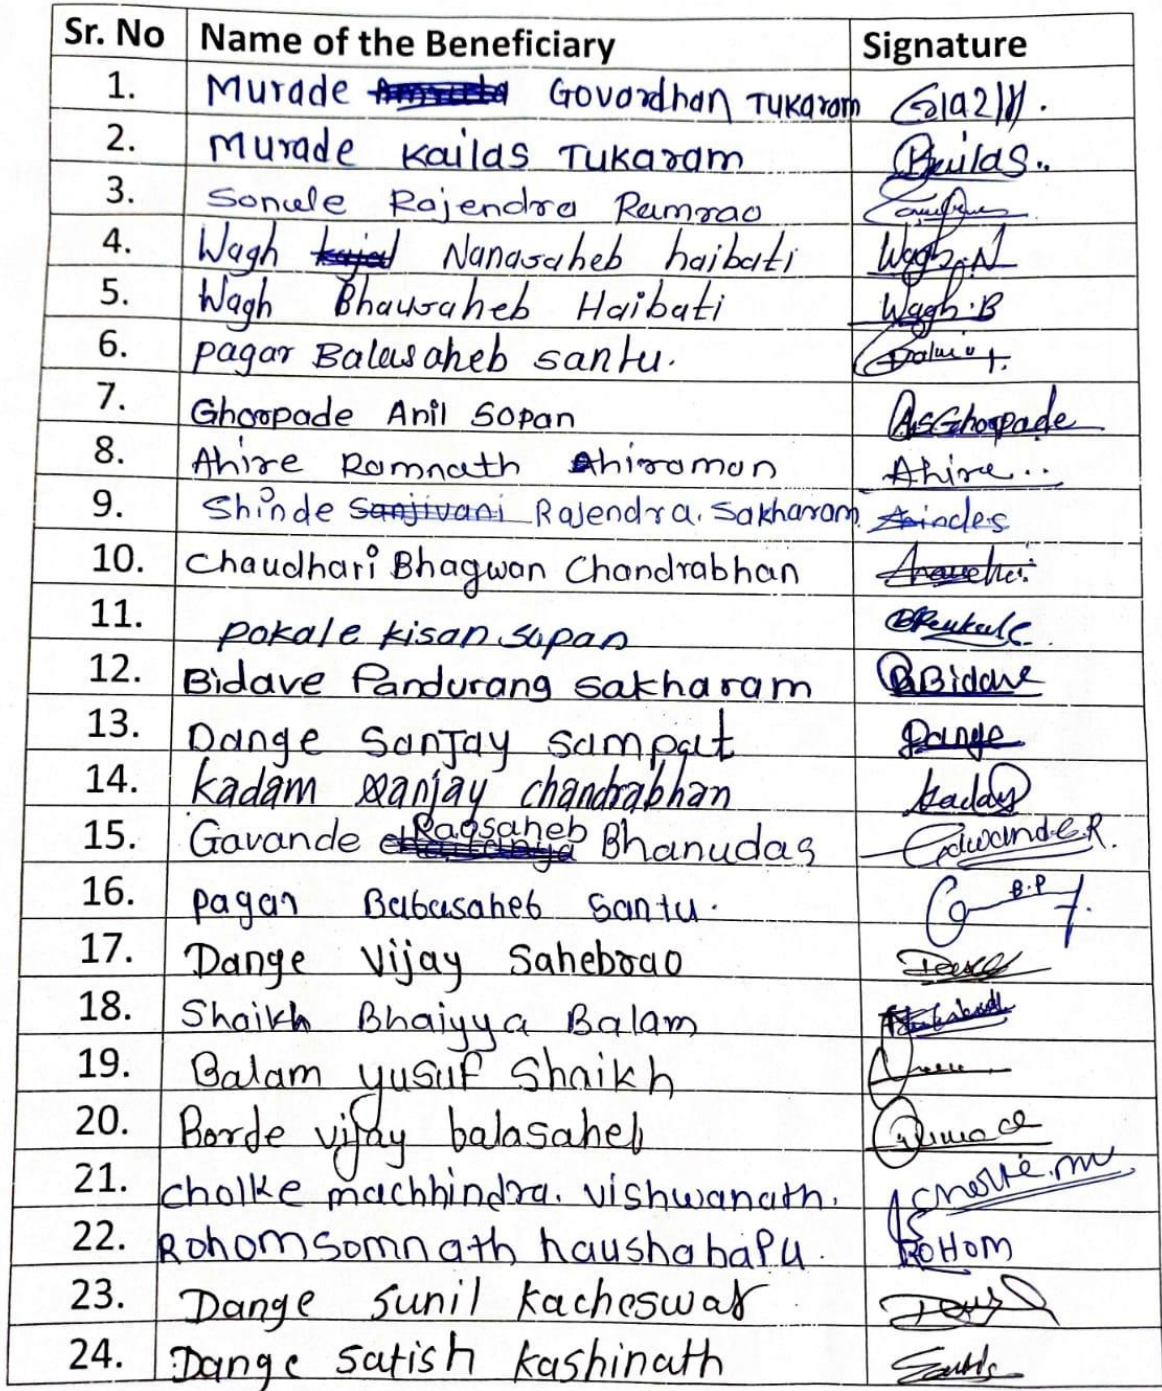 Sr. No Name of the Beneficiary Signature
1. Murade Govordhan Tukaram
2. Murade Kailas Tukaram
3. Sonule Rajendra Ramrao
4. Wagh kajal Nanasaheb haibati Wagh.N
5. Wagh Bhausaheb Haibati Wagh.B
6. pagar Balasaheb santu.
7. Ghorpade Anil Sopan AsGhorpade
8. Ahire Ramnath Ahiraman Ahire..
9. Shinde Sanjivani Rajendra. Sakharam
10. Chaudhari Bhagwan Chandrabhan
11. pokale kisan sopan
12. Bidave Pandurang sakharam Bidave
13. Dange Sanjay sampat Dange
14. kadam sanjay chandrabhan kadam
15. Gavande Raosaheb Bhanudas GawandeR.
16. pagar Babasaheb santu. B.P
17. Dange Vijay Sahebrao
18. Shaikh Bhaiyya Balam
19. Balam yusuf Shaikh
20. Borde vijay balasaheb
21. cholke machhindra. vishwanath. cholke.m
22. Rohomsomnath haushabapu. ROHOM
23. Dange Sunil kacheswar
24. Dange satish kashinath